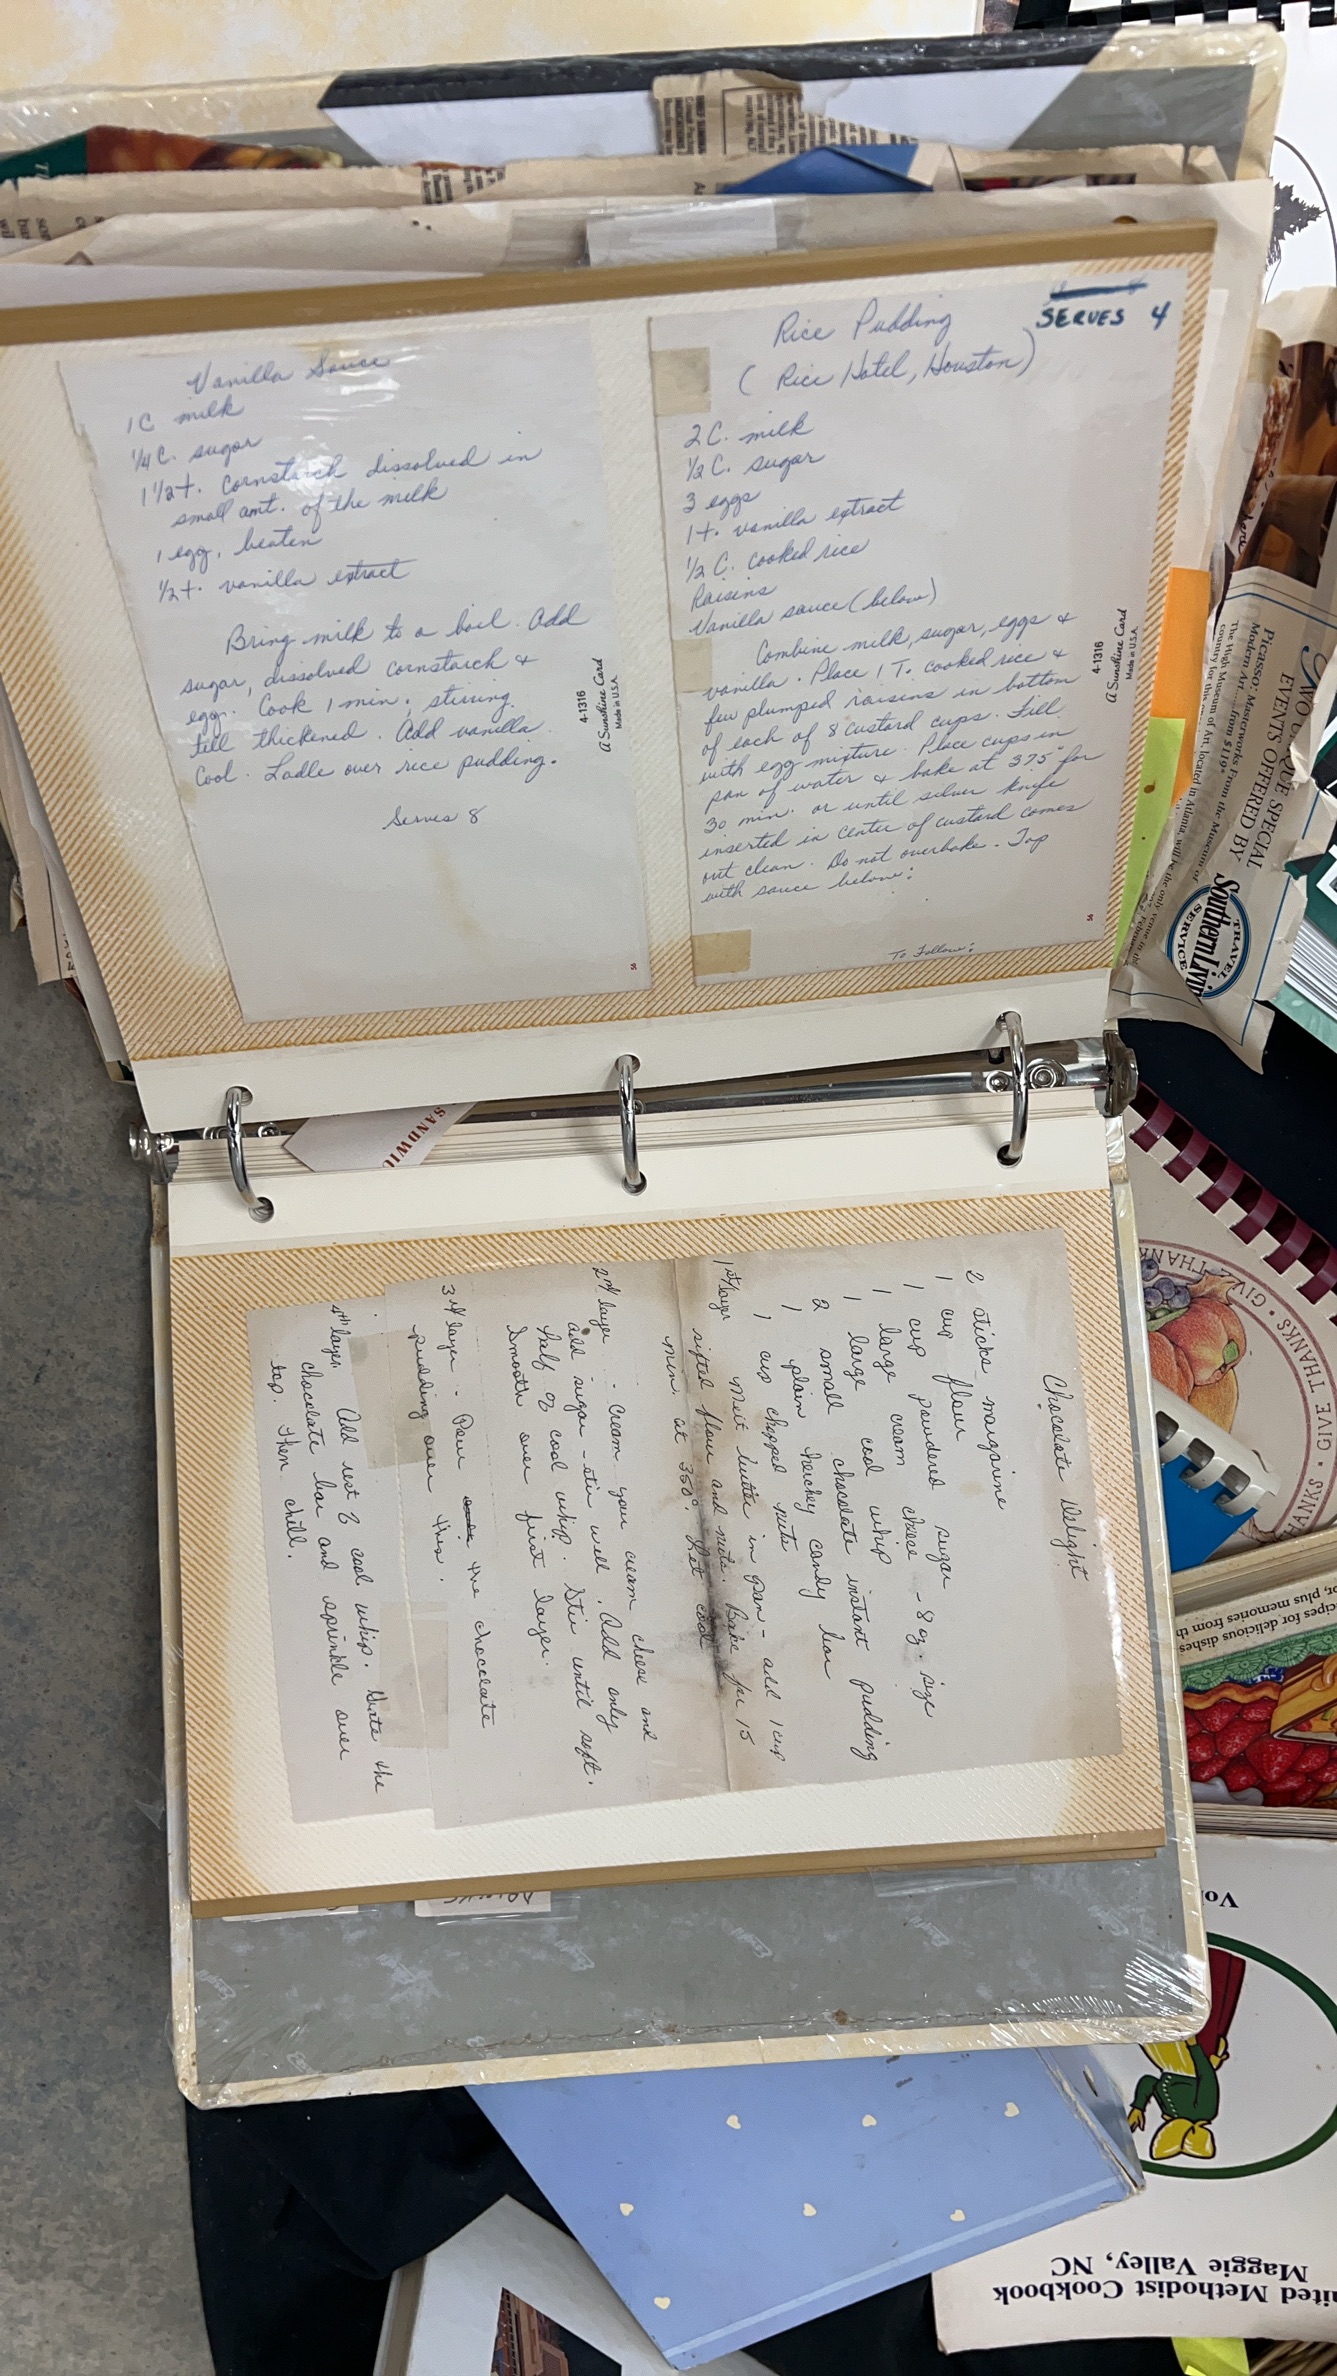 Vanilla Sauce
1 C milk
1/4 C. sugar
1 1/2 t. cornstarch dissolved in
small amt. of the milk
1 egg, beaten
1/2 t. vanilla extract
Bring milk to a boil. Add
sugar, dissolved cornstarch &
egg. Cook 1 min, stirring
till thickened. Add vanilla.
Cool. Ladle over rice pudding.
Serves 8
4-1316
a Sunshine Card
Made in U.S.A.
SERVES 4
Rice Pudding
(Rice Hotel, Houston)
2 C. milk
1/2 C. sugar
3 eggs
1 t. vanilla extract
1/2 C. cooked rice
Raisins
Vanilla sauce (below)
Combine milk, sugar, eggs &
vanilla. Place 1 T. cooked rice &
few plumped raisins in bottom
of each of 8 custard cups. Fill
with egg mixture. Place cups in
pan of water & bake at 375° for
30 min. or until silver knife
inserted in center of custard comes
out clean. Do not overbake. Top
with sauce below:
To Follow:
4-1316
a Sunshine Card
Made in U.S.A.
SANDWIC
Chocolate Delight
2 sticks margarine
1 cup flour
1 cup powdered sugar
1 large cream cheese - 8 oz. size
1 large cool whip
2 small chocolate instant pudding
1 plain hershey candy bar
1 cup chopped nuts
1st layer Melt butter in pan - add 1 cup
sifted flour and nuts. Bake for 15
min. at 350°. Let cool
2nd layer - Cream your cream cheese and
add sugar - stir well. Add only
half of cool whip. Stir until soft.
Smooth over first layer.
3rd layer - Pour the chocolate
pudding over this.
4th layer. Add rest of cool whip. Grate the
chocolate bar and sprinkle over
top. Then chill.
TWO UNIQUE SPECIAL
EVENTS OFFERED BY
Southern Living
TRAVEL
SERVICE
Picasso: Masterworks From the Museum of
Modern Art.....from $119*
The High Museum of Art, located in Atlanta, will be the only venue in the
GIVE THANKS • GIVE THANKS
cipes for delicious dishes
or, plus memories from th
Vol
nited Methodist Cookbook
Maggie Valley, NC